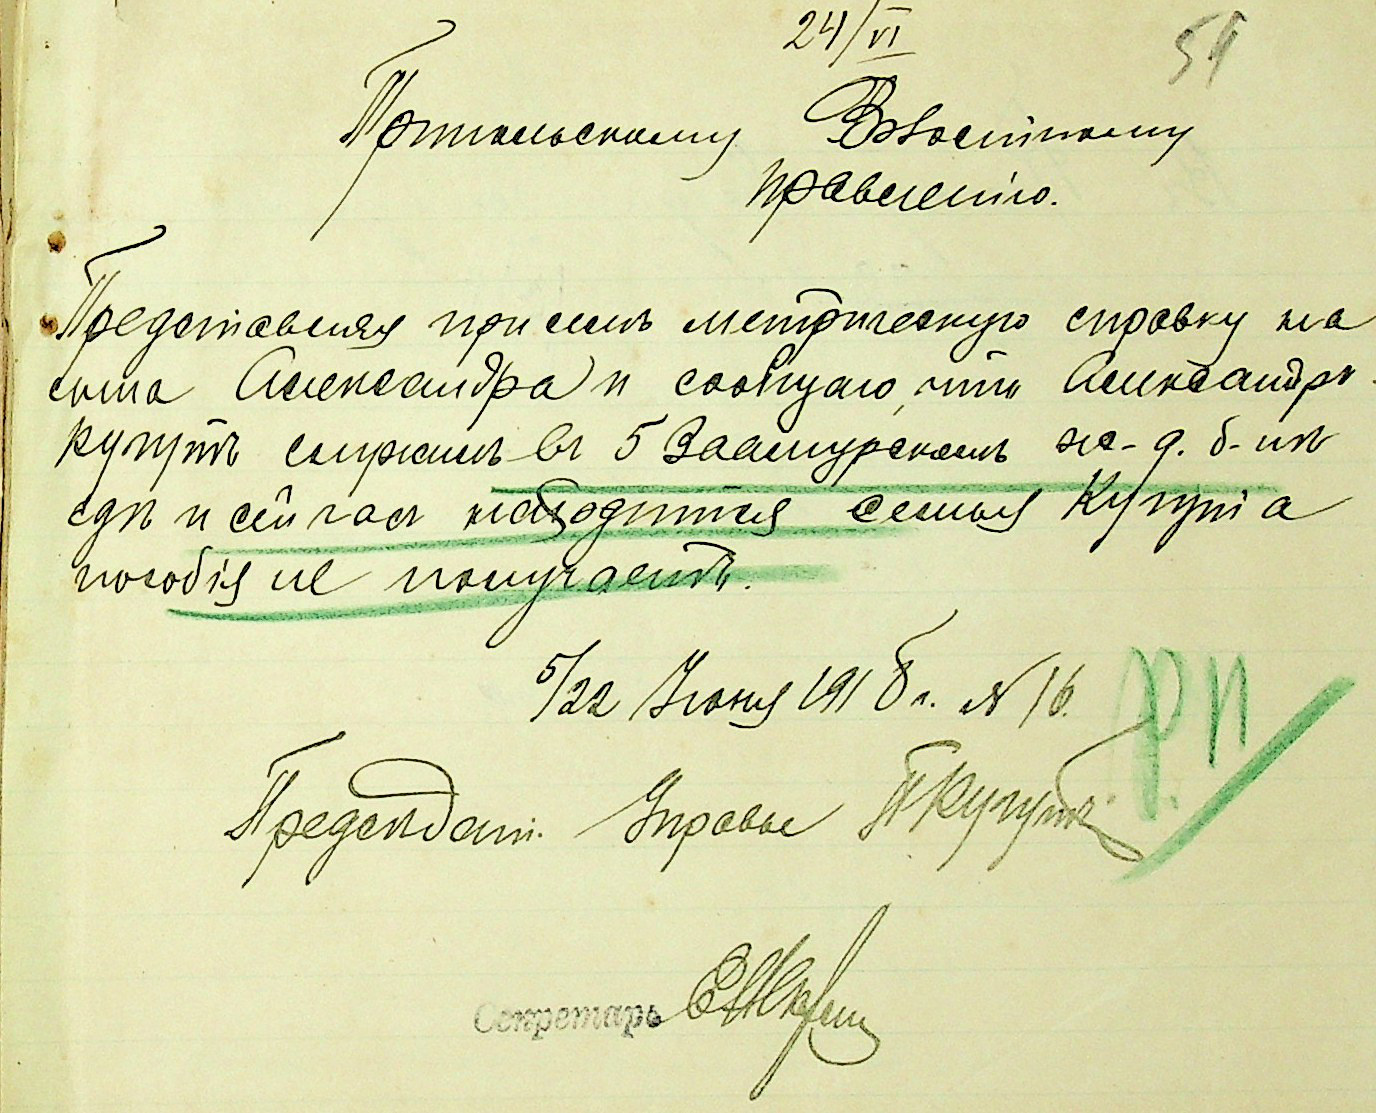 24/VI
54
Волостному
правленію.
Представляя при семъ метрическую справку на
сына Александра и сообщаю, что Александръ
Кугутъ служилъ въ 5 Заамурскомъ ж-д. б-нѣ
гдѣ и сейчасъ находится семья Кугута
пособія не получаетъ.
5/22 Іюня 1918 г. № 16.
РП
Предсѣдат. Управы ПКугутъ
Секретарь